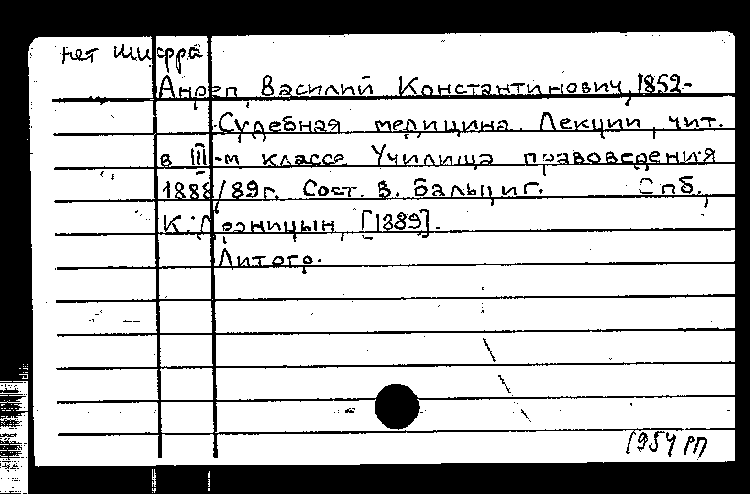 нет шифра
Анреп, Василий Константинович, 1852-
Судебная медицина. Лекции, чит.
в III-м классе Училища правоведения
1888/89г. Сост. В. Бальциг. Спб.,
К. Рэницын, [1889].
Литогр.
1954 рп